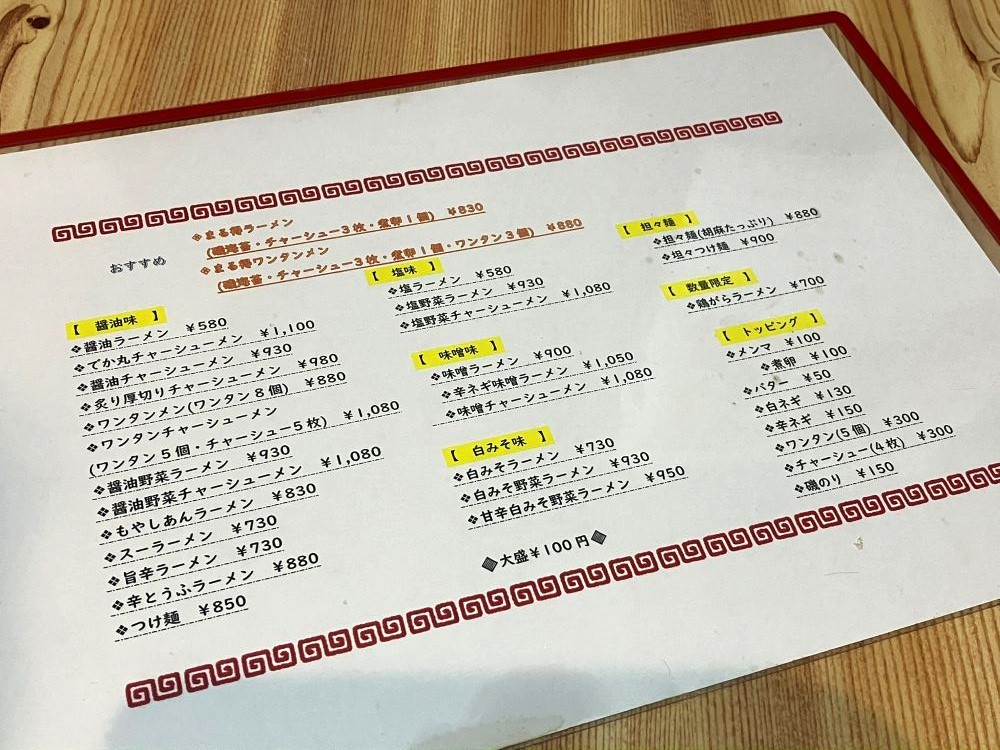 おすすめ
❖まる得ラーメン
(磯海苔・チャーシュー3枚・煮卵1個) ¥830
❖まる得ワンタンメン
(磯海苔・チャーシュー3枚・煮卵1個・ワンタン3個) ¥880
【 醤油味 】
❖醤油ラーメン ¥580
❖でか丸チャーシューメン ¥1,100
❖醤油チャーシューメン ¥930
❖炙り厚切りチャーシューメン ¥980
❖ワンタンメン(ワンタン8個) ¥880
❖ワンタンチャーシューメン
(ワンタン5個・チャーシュー5枚) ¥1,080
❖醤油野菜ラーメン ¥930
❖醤油野菜チャーシューメン ¥1,080
❖もやしあんラーメン ¥830
❖スーラーメン ¥730
❖旨辛ラーメン ¥730
❖辛とうふラーメン ¥880
❖つけ麺 ¥850
【 塩味 】
❖塩ラーメン ¥580
❖塩野菜ラーメン ¥930
❖塩野菜チャーシューメン ¥1,080
【 味噌味 】
❖味噌ラーメン ¥900
❖辛ネギ味噌ラーメン ¥1,050
❖味噌チャーシューメン ¥1,080
【 白みそ味 】
❖白みそラーメン ¥730
❖白みそ野菜ラーメン ¥930
❖甘辛白みそ野菜ラーメン ¥950
◆大盛¥100円◆
【 担々麺 】
❖担々麺(胡麻たっぷり) ¥880
❖担々つけ麺 ¥900
【 数量限定 】
❖鶏がらラーメン ¥700
【 トッピング 】
❖メンマ ¥100
❖煮卵 ¥100
❖バター ¥50
❖白ネギ ¥130
❖辛ネギ ¥150
❖ワンタン(5個) ¥300
❖チャーシュー(4枚) ¥300
❖磯のり ¥150